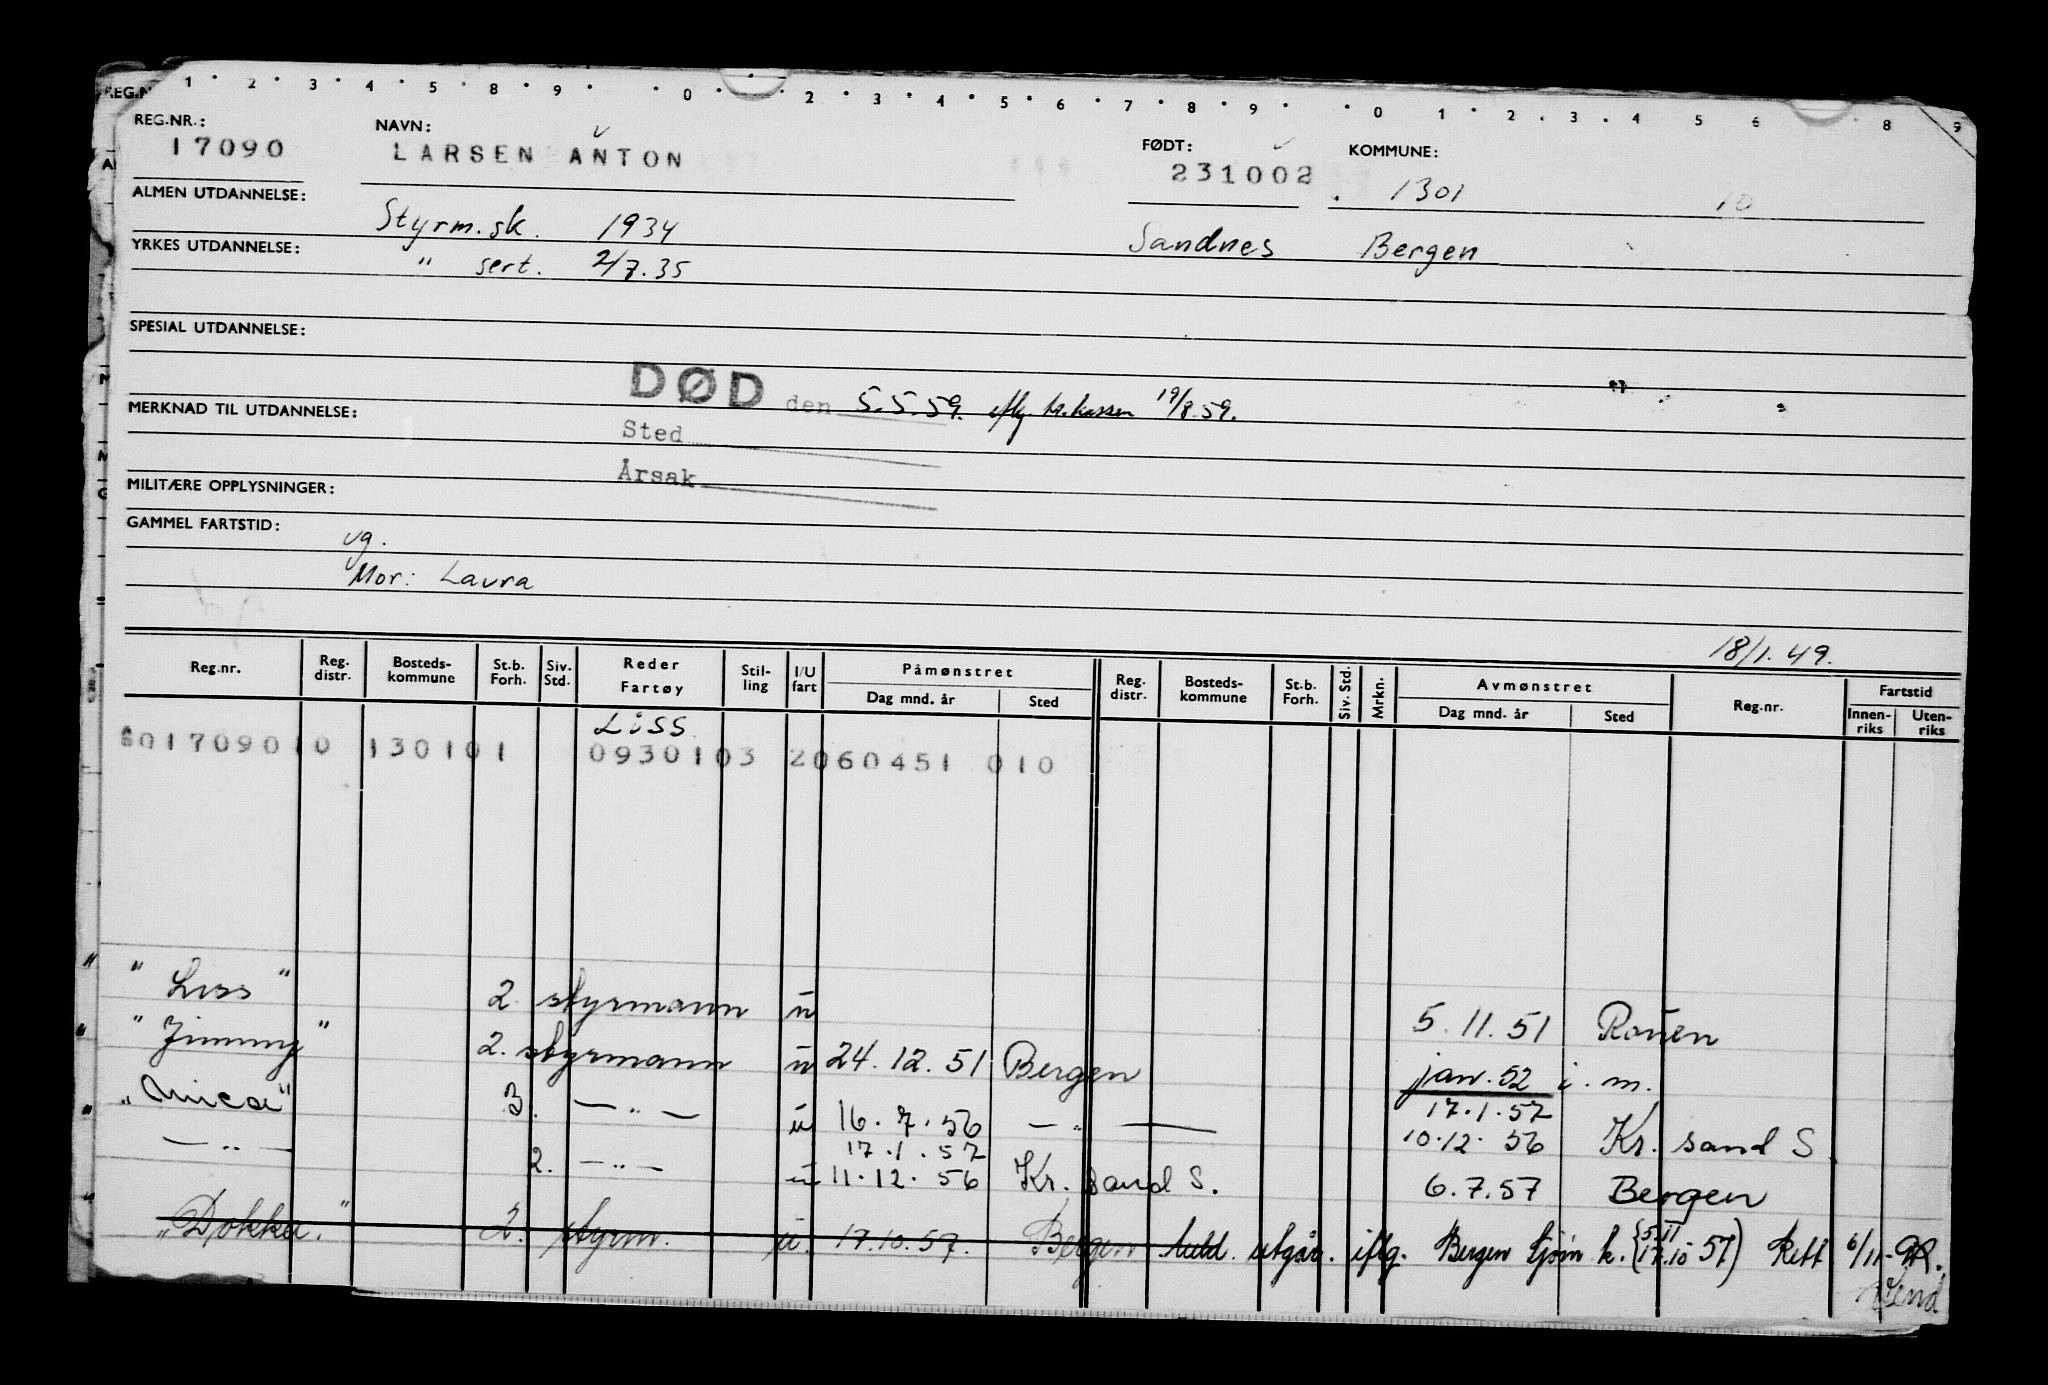 1 2 3 4 5 8 9 0 2 3 4 5 6 7 8 9 0 1 2 3 4 5 6 8 9
REG.NR.: NAVN: FØDT: KOMMUNE:
17090 LARSEN ANTON 231002 1301 10
ALMEN UTDANNELSE: Styrm.sk. 1934 Sandnes Bergen
YRKES UTDANNELSE: " sert. 2/7.35
SPESIAL UTDANNELSE:
DØD den 5.5.59. iflg. tr.kassen 19/8.59.
MERKNAD TIL UTDANNELSE:
Sted
Årsak
MILITÆRE OPPLYSNINGER:
GAMMEL FARTSTID:
ug.
Mor: Laura
18/1.49.
Reg.nr. Reg. distr. Bosteds-kommune St.b. Forh. Siv. Std. Reder Fartøy Stil-ling I/U fart Påmønstret Dag mnd. år Sted Reg. distr. Bosteds-kommune St.b. Forh. Siv. Std. Mrkn. Avmønstret Dag mnd. år Sted Reg.nr. Fartstid Innen-riks Uten-riks
Liss
601709010 130101 0930103 2060451 010
"Liss" 2 styrmann u 5.11.51 Rouen
"Jimmy" 2. styrmann u 24.12.51 Bergen jan.52 i.m.
"Mica" 3. — " — u 16.7.56 — " — 17.1.57 10.12.56 Kr.sand S.
— " — 2. — " — u 17.1.57 11.12.56 Kr.sand S. 6.7.57 Bergen
"Dokka" 2. styrm. u. 17.10.57. Bergen Meld. utgår. iflg. Bergen sjøm k. (5.11 17.10 57) Rett 6/11-
Vend